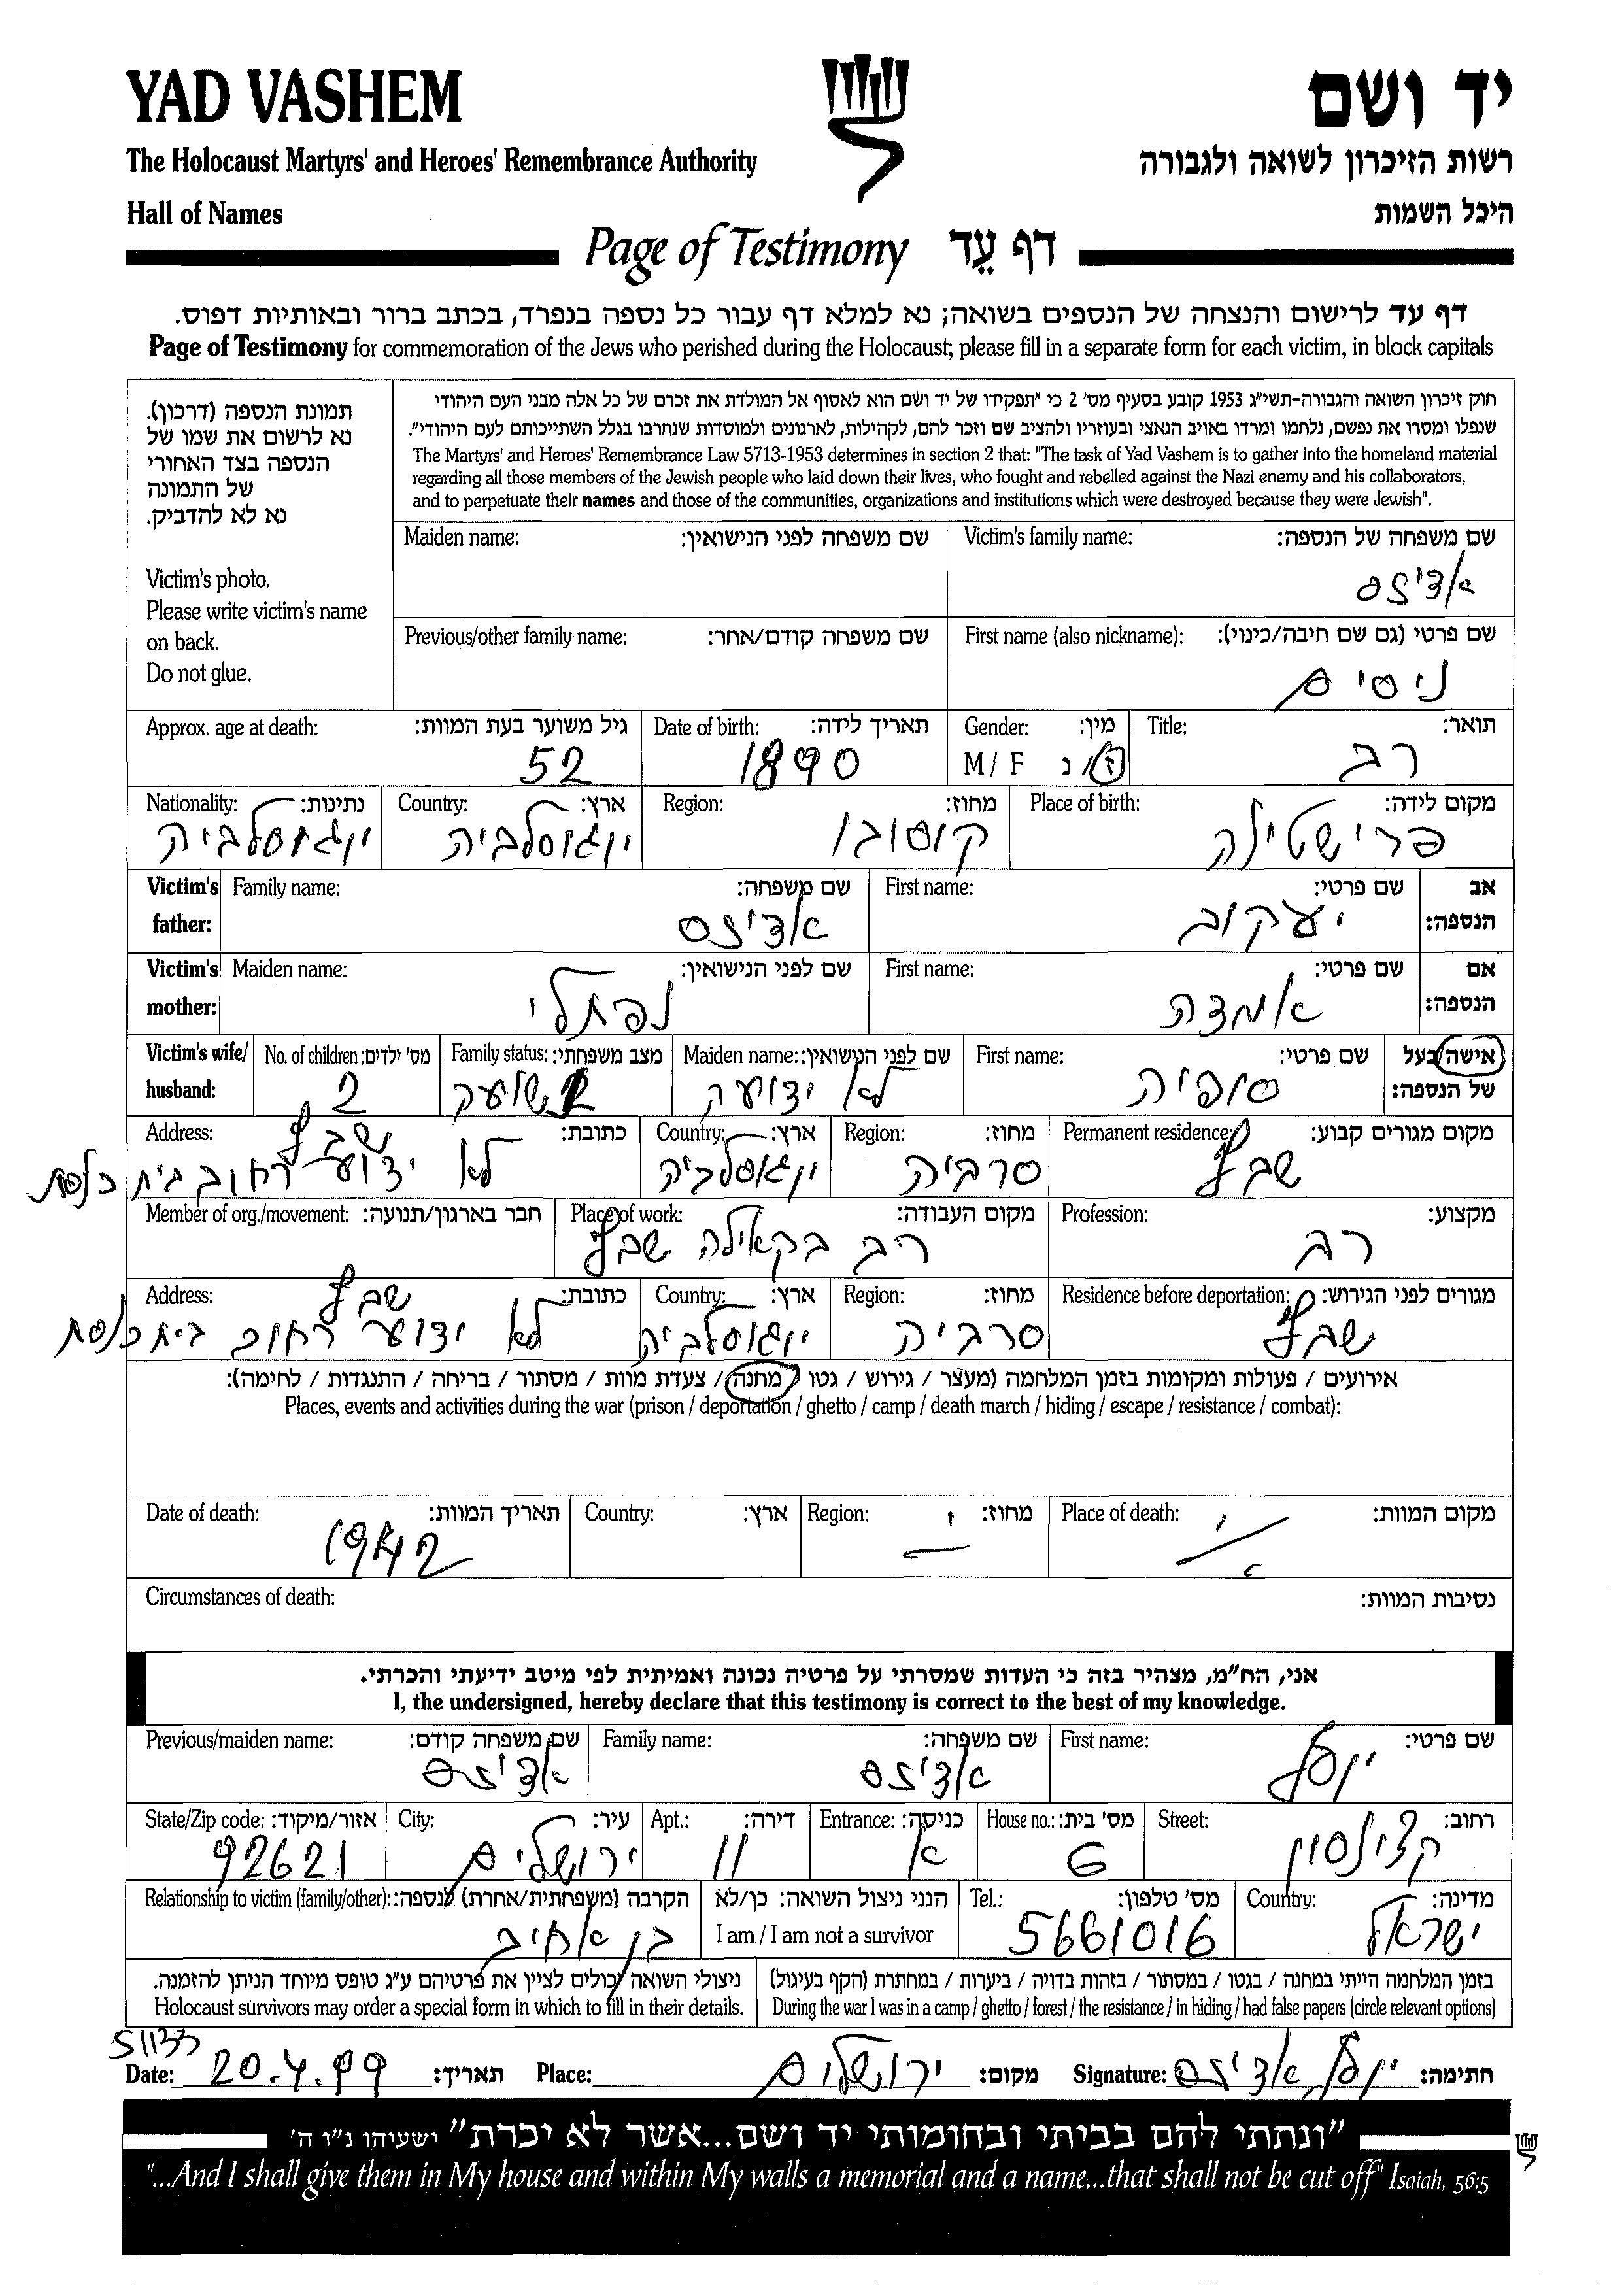 YAD VASHEM
יד ושם
The Holocaust Martyrs' and Heroes' Remembrance Authority
רשות הזיכרון לשואה ולגבורה
Hall of Names
היכל השמות
Page of Testimony דף עֵד
דף עד לרישום והנצחה של הנספים בשואה; נא למלא דף עבור כל נספה בנפרד, בכתב ברור ובאותיות דפוס.
Page of Testimony for commemoration of the Jews who perished during the Holocaust; please fill in a separate form for each victim, in block capitals
תמונת הנספה (דרכון).
נא לרשום את שמו של
הנספה בצד האחורי
של התמונה
נא לא להדביק.
Victim's photo.
Please write victim's name
on back.
Do not glue.
חוק זיכרון השואה והגבורה-תשי"ג 1953 קובע בסעיף מס' 2 כי "תפקידו של יד ושם הוא לאסוף אל המולדת את זכרם של כל אלה מבני העם היהודי
שנפלו ומסרו את נפשם, נלחמו ומרדו באויב הנאצי ובעוזריו ולהציב שם וזכר להם, לקהילות, לארגונים ולמוסדות שנחרבו בגלל השתייכותם לעם היהודי".
The Martyrs' and Heroes' Remembrance Law 5713-1953 determines in section 2 that: "The task of Yad Vashem is to gather into the homeland material
regarding all those members of the Jewish people who laid down their lives, who fought and rebelled against the Nazi enemy and his collaborators,
and to perpetuate their names and those of the communities, organizations and institutions which were destroyed because they were Jewish".
Victim's family name: שם משפחה של הנספה:
אדיזס
Maiden name: שם משפחה לפני הנישואין:
First name (also nickname): שם פרטי (גם שם חיבה/כינוי):
ניסים
Previous/other family name: שם משפחה קודם/אחר:
Title: תואר:
רב
Gender: מין:
M / F ז/נ
Date of birth: תאריך לידה:
1890
Approx. age at death: גיל משוער בעת המוות:
52
Place of birth: מקום לידה:
פרישטילה
Region: מחוז:
קוסובו
Country: ארץ:
יוגוסלביה
Nationality: נתינות:
יוגוסלביה
Victim's father: אב הנספה:
First name: שם פרטי:
יעקוב
Family name: שם משפחה:
אדיזס
Victim's mother: אם הנספה:
First name: שם פרטי:
אמדה
Maiden name: שם לפני הנישואין:
נפתלי
Victim's wife/ husband: אישה/בעל של הנספה:
First name: שם פרטי:
סופיה
Maiden name: שם לפני הנישואין:
לא ידועה
Family status: מצב משפחתי:
No. of children: מס' ילדים:
2
Permanent residence: מקום מגורים קבוע:
שבץ
Region: מחוז:
סרביה
Country: ארץ:
יוגוסלביה
Address: כתובת:
שבץ
לא ידוע רחוב בית כנסת
Profession: מקצוע:
רב
Place of work: מקום העבודה:
רב בקאילה שבץ
Member of org./movement: חבר בארגון/תנועה:
Residence before deportation: מגורים לפני הגירוש:
שבץ
Region: מחוז:
סרביה
Country: ארץ:
יוגוסלביה
Address: כתובת:
שבץ
לא ידוע רחוב בית כנסת
אירועים / פעולות ומקומות בזמן המלחמה (מעצר / גירוש / גטו / מחנה / צעדת מוות / מסתור / בריחה / התנגדות / לחימה):
Places, events and activities during the war (prison / deportation / ghetto / camp / death march / hiding / escape / resistance / combat):
Place of death: מקום המוות:
Region: מחוז:
Country: ארץ:
Date of death: תאריך המוות:
1942
Circumstances of death: נסיבות המוות:
אני, הח"מ, מצהיר בזה כי העדות שמסרתי על פרטיה נכונה ואמיתית לפי מיטב ידיעתי והכרתי.
I, the undersigned, hereby declare that this testimony is correct to the best of my knowledge.
First name: שם פרטי:
יוסף
Family name: שם משפחה:
אדיזס
Previous/maiden name: שם משפחה קודם:
אדיזס
Street: רחוב:
קצנלסון
House no.: מס' בית:
6
Entrance: כניסה:
א
Apt.: דירה:
11
City: עיר:
ירושלים
State/Zip code: אזור/מיקוד:
92621
Country: מדינה:
ישראל
Tel.: מס' טלפון:
5661016
הנני ניצול השואה: כן/לא
I am / I am not a survivor
Relationship to victim (family/other): הקרבה (משפחתית/אחרת) לנספה:
בן אחיב
בזמן המלחמה הייתי במחנה / בגטו / במסתור / בזהות בדויה / ביערות / במחתרת (הקף בעיגול)
During the war I was in a camp / ghetto / forest / the resistance / in hiding / had false papers (circle relevant options)
ניצולי השואה יכולים לציין את פרטיהם ע"ג טופס מיוחד הניתן להזמנה.
Holocaust survivors may order a special form in which to fill in their details.
51133
Date: 20.4.99 תאריך: Place: ירושלים מקום: Signature: יוסף אדיזס חתימה:
"ונתתי להם בביתי ובחומותי יד ושם...אשר לא יכרת" ישעיהו נ"ו ה'
"...And I shall give them in My house and within My walls a memorial and a name...that shall not be cut off" Isaiah, 56:5